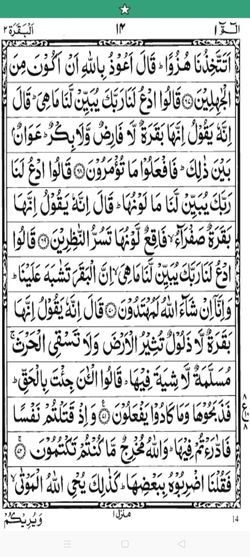 الٓمّٓ ١ ١٤ البقرة ٢
اَتَتَّخِذُنَا هُزُوًا ؕ قَالَ اَعُوْذُ بِاللّٰهِ اَنْ اَكُوْنَ مِنَ
الْجٰهِلِيْنَ ﴿۶۷﴾ قَالُوا ادْعُ لَنَا رَبَّكَ يُبَيِّنْ لَّنَا مَا هِيَ ؕ قَالَ
اِنَّهٗ يَقُوْلُ اِنَّهَا بَقَرَةٌ لَّا فَارِضٌ وَّلَا بِكْرٌ ؕ عَوَانٌۢ
بَيْنَ ذٰلِكَ ؕ فَافْعَلُوْا مَا تُؤْمَرُوْنَ ﴿۶۸﴾ قَالُوا ادْعُ لَنَا
رَبَّكَ يُبَيِّنْ لَّنَا مَا لَوْنُهَا ؕ قَالَ اِنَّهٗ يَقُوْلُ اِنَّهَا
بَقَرَةٌ صَفْرَآءُ ۙ فَاقِعٌ لَّوْنُهَا تَسُرُّ النّٰظِرِيْنَ ﴿۶۹﴾ قَالُوا
ادْعُ لَنَا رَبَّكَ يُبَيِّنْ لَّنَا مَا هِيَ ۙ اِنَّ الْبَقَرَ تَشٰبَهَ عَلَيْنَا ؕ
وَاِنَّاۤ اِنْ شَآءَ اللّٰهُ لَمُهْتَدُوْنَ ﴿۷۰﴾ قَالَ اِنَّهٗ يَقُوْلُ اِنَّهَا
بَقَرَةٌ لَّا ذَلُوْلٌ تُثِيْرُ الْاَرْضَ وَلَا تَسْقِى الْحَرْثَ ۚ
مُسَلَّمَةٌ لَّا شِيَةَ فِيْهَا ؕ قَالُوا الْـٰٔنَ جِئْتَ بِالْحَقِّ ؕ
فَذَبَحُوْهَا وَمَا كَادُوْا يَفْعَلُوْنَ ﴿۷۱﴾ وَاِذْ قَتَلْتُمْ نَفْسًا
فَادّٰرَءْتُمْ فِيْهَا ؕ وَاللّٰهُ مُخْرِجٌ مَّا كُنْتُمْ تَكْتُمُوْنَ ﴿۷۲﴾
فَقُلْنَا اضْرِبُوْهُ بِبَعْضِهَا ؕ كَذٰلِكَ يُحْىِ اللّٰهُ الْمَوْتٰى ۙ
وَيُرِيْكُمْ منزل ١ 14